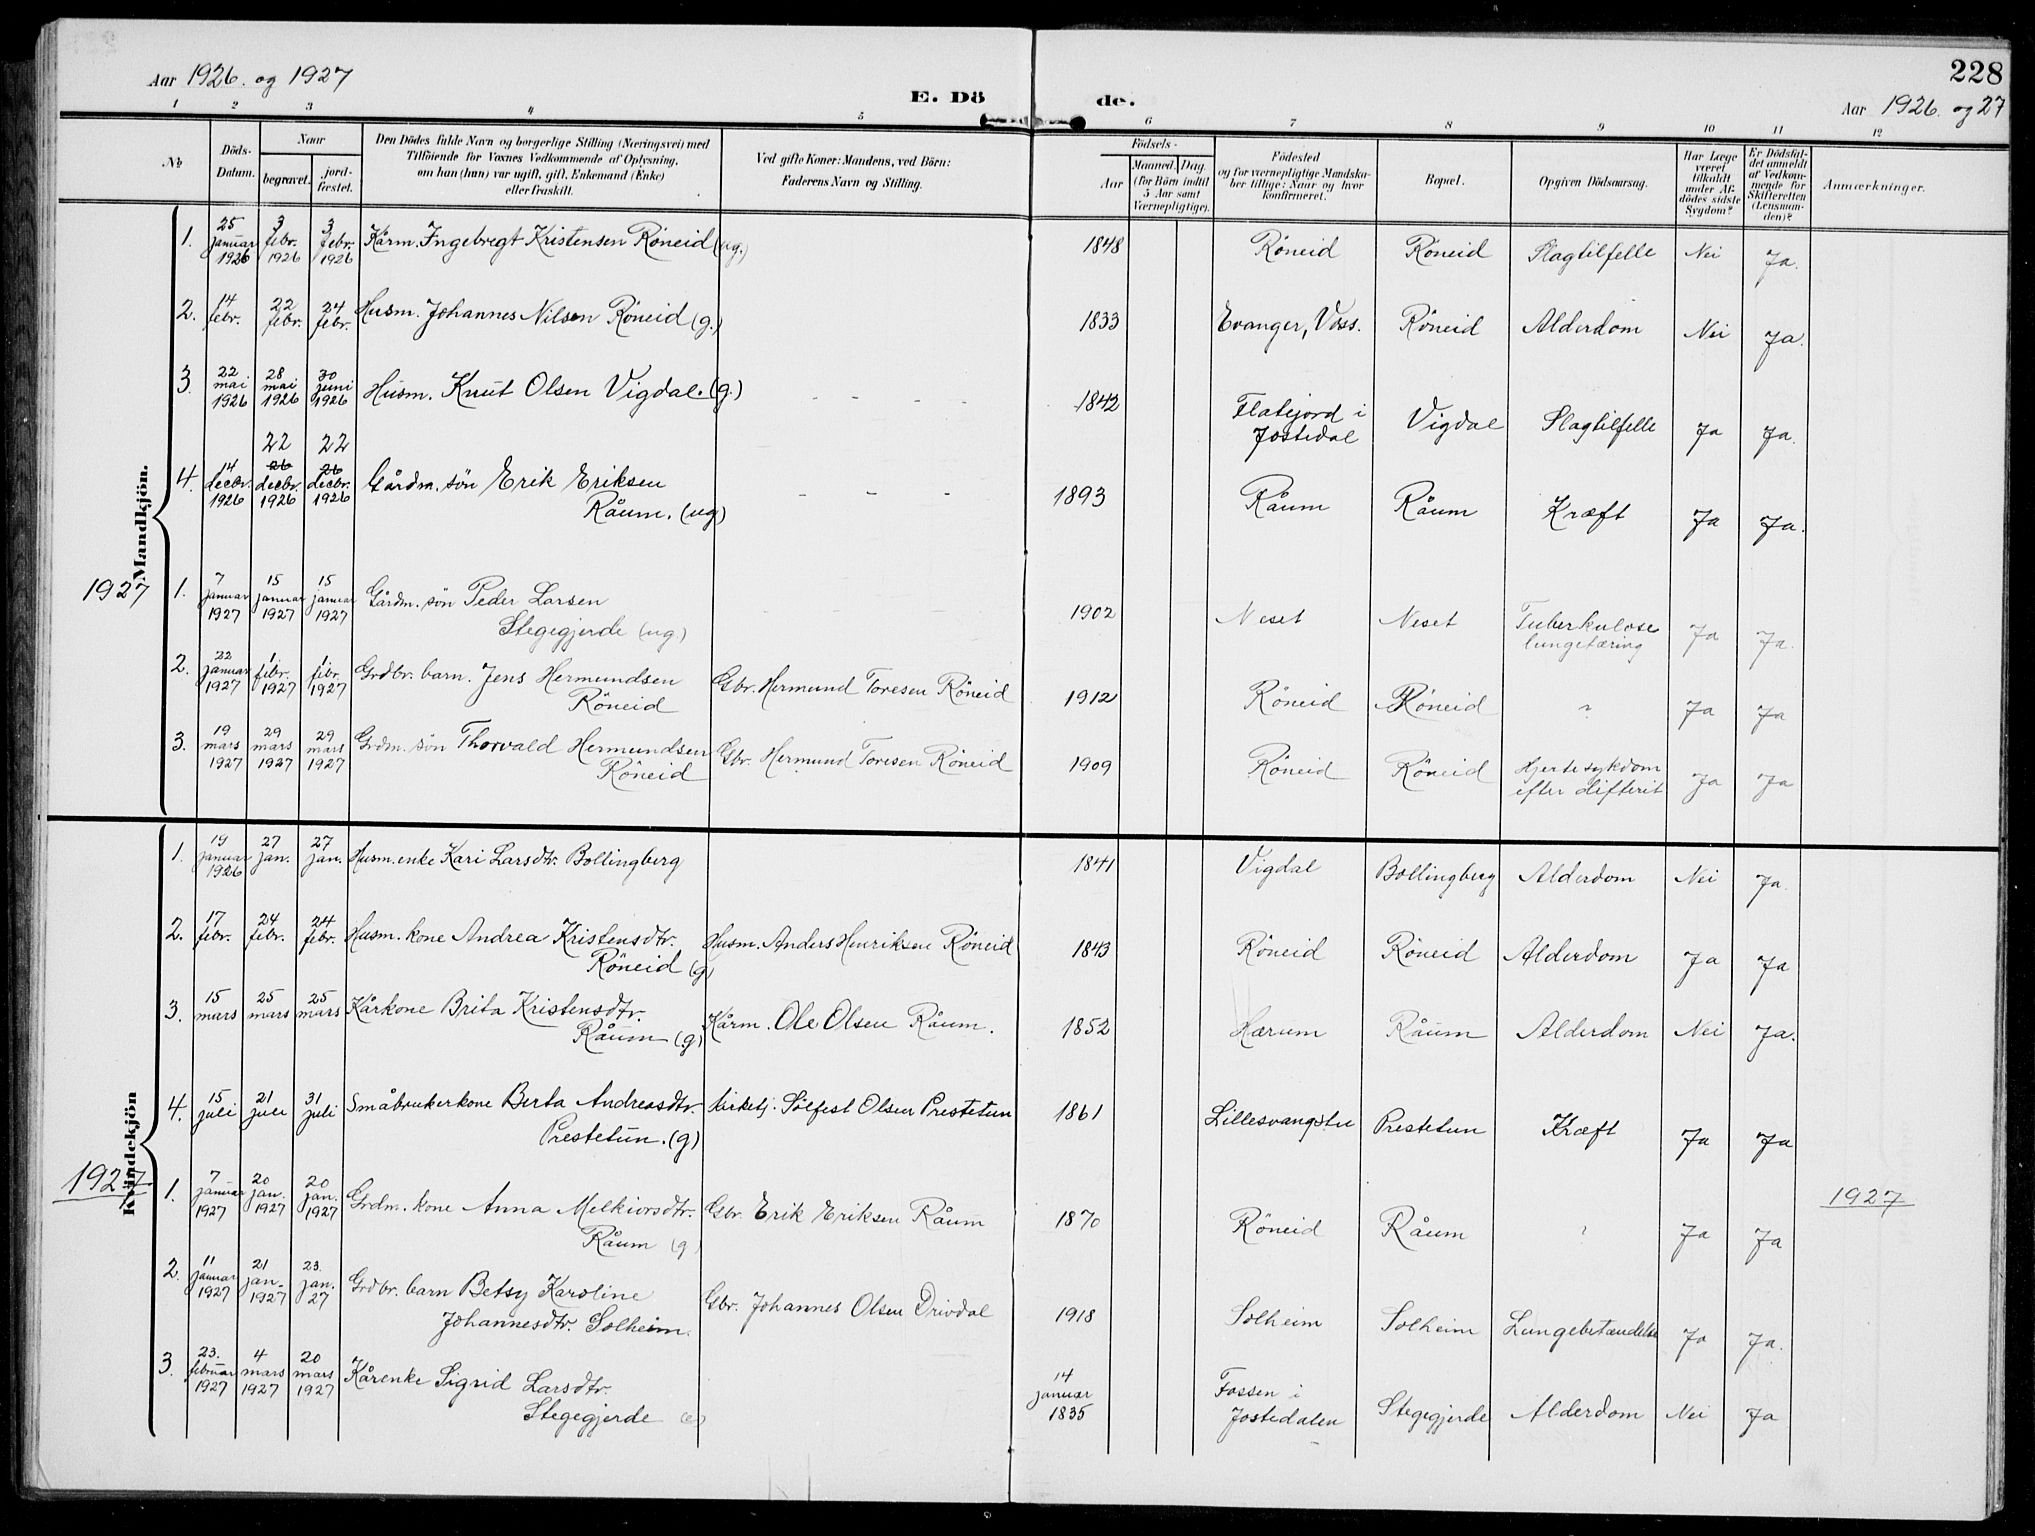 228
Aar 1926. og 1927
E. Dö de.
Aar 1926. og 27
1 2 3 4 5 6 7 8 9 10 11 12
No
Döds-Datum.
Naar
begravet.
jord-fæstet.
Den Dödes fulde Navn og borgerlige Stilling (Næringsvei) med
Tilföiende for Voxnes Vedkommende af Oplysning,
om han (hun) var ugift, gift, Enkemand (Enke)
eller fraskilt.
Ved gifte Koner: Mandens, ved Börn:
Faderens Navn og Stilling.
Födsels-
Aar
Maaned. Dag.
(for Börn indtil
5 Aar samt
Værnepligtige).
Födested
og for værnepligtige Mandska-
ber tillige: Naar og hvor
konfirmeret.
Bopæl.
Opgiven Dödsaarsag.
Har Læge
været
tilkaldt
under Af-
dödes sidste
Sygdom?
Er Dödsfal-
det anmeldt
af Vedkom-
mende for
Skifteretten
(Lensman-
den)?
Anmærkninger.
Mandkjön.
1. 25 januar 1926 3 febr. 1926 3 febr. 1926 Kårm. Ingebregt Kristensen Röneid (ug.) 1848 Röneid Röneid Slagtilfelle Nei Ja.
2. 14 febr. 22 febr. 24 febr. Husm. Johannes Nilsen Röneid (g.) 1833 Evanger, Voss. Röneid Alderdom Nei Ja.
3 22 mai 1926 28 mai 1926 30 juni 1926 Husm. Knut Olsen Vigdal. (g.) - - - - 1842 Flatejord i Jostedal Vigdal Slagtilfelle Ja Ja.
4. 14 decbr. 1926 22 26 decbr. 1926 22 26 decbr. 1926 Gårdm. sön Erik Eriksen
Råum. (ug) - - - 1893 Råum Råum Kræft Ja Ja.
1927
1. 7 januar 1927 15 januar 1927 15 januar 1927 Gårdm. sön Peder Larsen
Stegegjerde (ug.) 1902 Neset Neset Tuberkulose lungetæring Ja Ja.
2. 22 januar 1927 1 febr. 1927 1 febr. 1927 Grdbr. barn. Jens Hermundsen
Röneid Gbr. Hermund Toresen Röneid 1912 Röneid Röneid ? Ja Ja
3. 19 mars 1927 29 mars 1927 29 mars 1927 Grdm. sön Thorvald Hermundsen
Röneid Gbr. Hermund Toresen Röneid 1909 Röneid Röneid Hjertesykdom efter difterit Ja Ja
Kvindekjön
1. 19 januar 1926 27 jan. 27 jan. Husm. enke Kari Larsdtr. Bollingberg 1841 Vigdal Bollingberg Alderdom Nei Ja.
2. 17 febr. 24 febr. 24 febr. Husm. kone Andrea Kristensdtr.
Röneid (g) Husm. Anders Henriksen Röneid 1843 Röneid Röneid Alderdom Ja Ja
3. 15 mars 25 mars 25 mars Kårkone Brita Kristensdtr.
Råum (g) Kårm. Ole Olsen Råum. 1852 Hærum Råum Alderdom Nei Ja.
4. 15 juli 21 juli 31 juli Småbrukerkone Berta Andreasdtr.
Prestetun. (g) kirketj. Sølfest Olsen Prestetun 1861 Lillesvangstu Prestetun Kræft Ja Ja
1927
1927
1. 7 januar 1927 20 jan. 1927 20 jan. 1927 Grdm. kone Anna Melkiorsdtr.
Råum (g) Gbr. Erik Eriksen Råum 1870 Röneid Råum ? Ja Ja
2. 11 januar 1927 21 jan. 1927 23. jan. 27 Grdbr. barn Betsy Karoline
Johannesdtr. Solheim. Gbr. Johannes Olsen Drivdal 1918 Solheim Solheim Lungebetændelse Ja Ja.
3. 23. februar 1927 4 mars 1927 20 mars 1927 Kårenke Sigrid Larsdtr.
Stegegjerde (e) 14 januar 1835 Fossen i Jostedalen Stegegjerde Alderdom Nei Ja